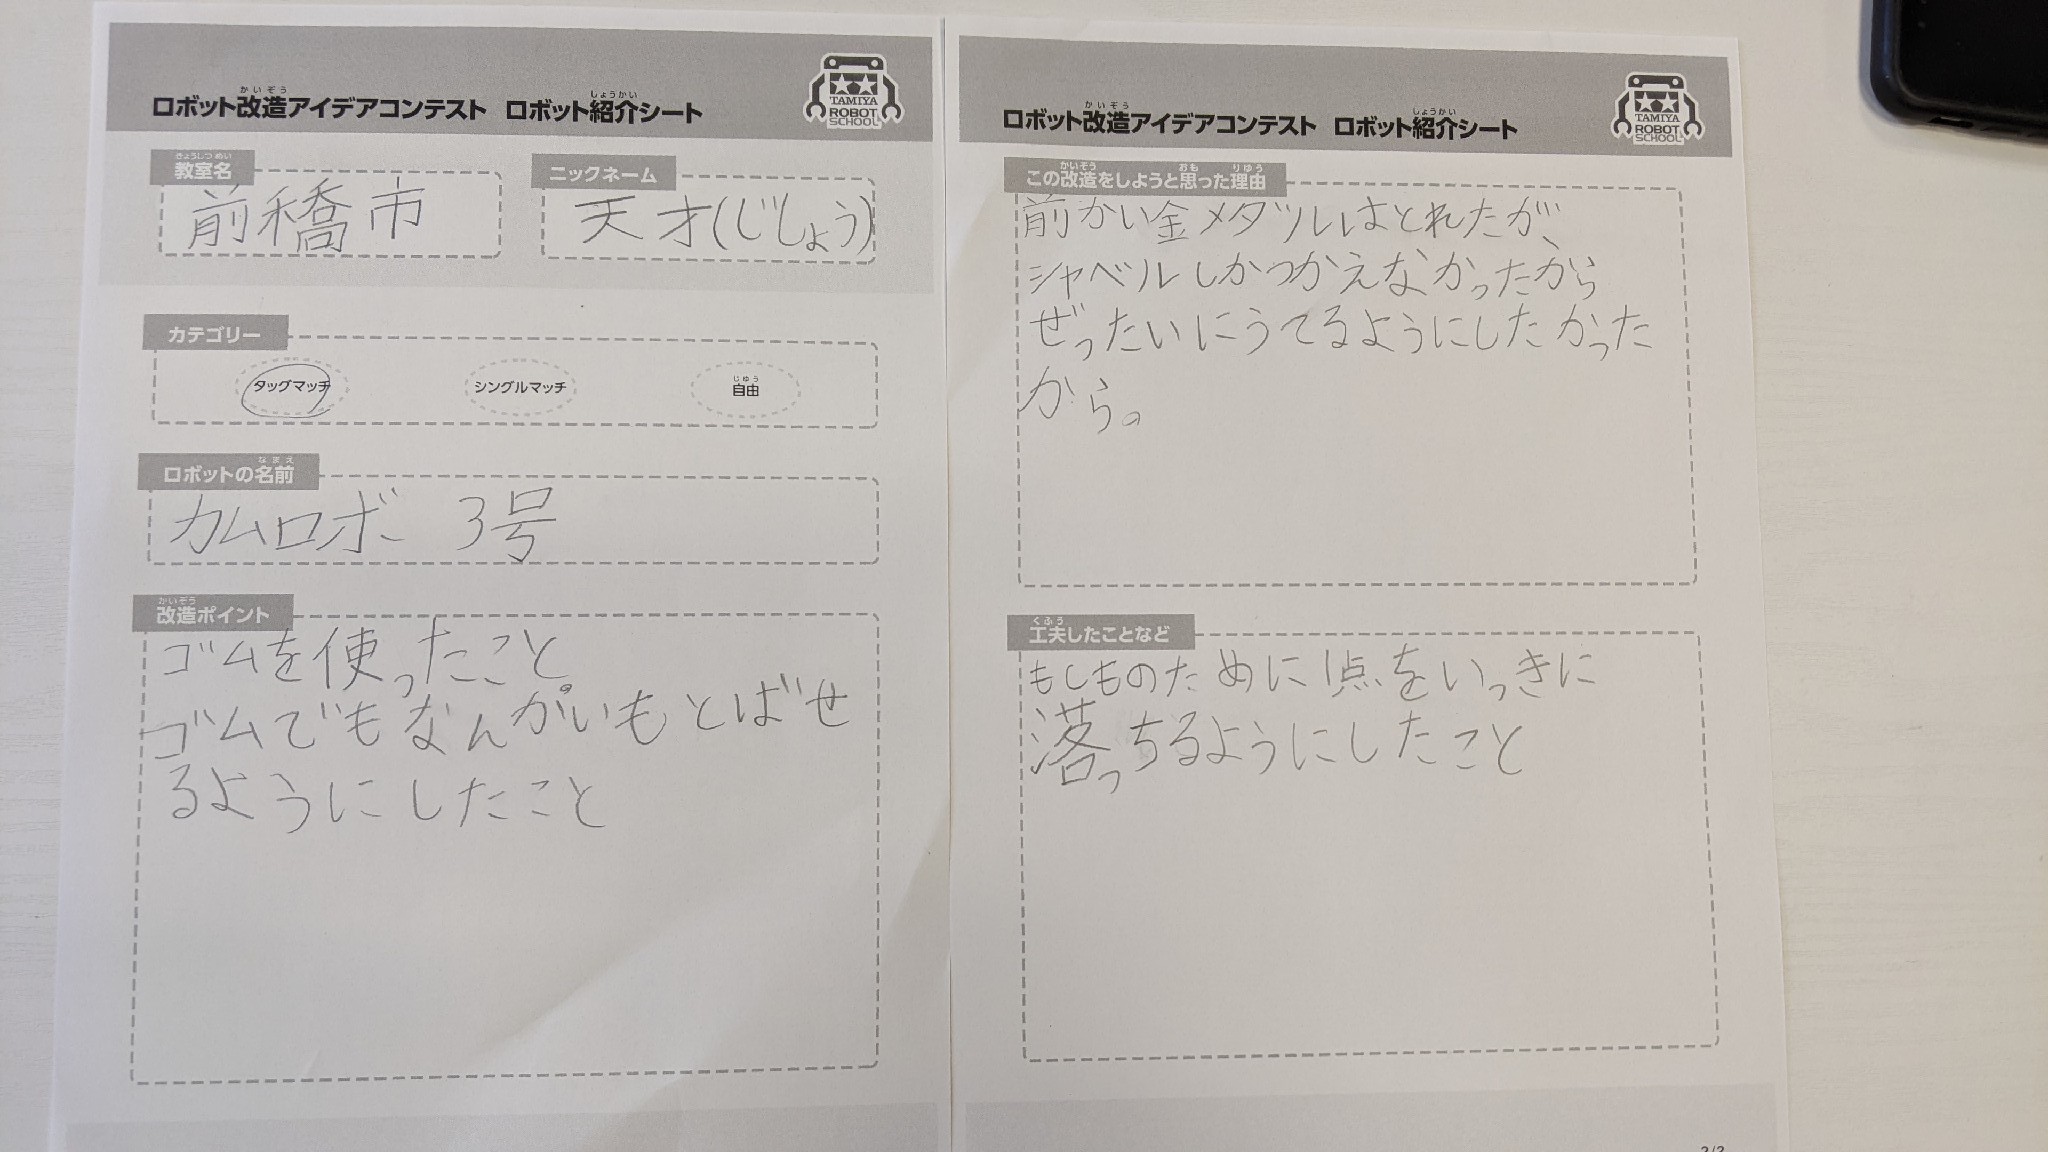 かいぞう しょうかい
ロボット改造アイデアコンテスト ロボット紹介シート
TAMIYA
ROBOT
SCHOOL
きょうしつめい
教室名
前橋市
ニックネーム
天才(じしょう)
カテゴリー
タッグマッチ
シングルマッチ
じゆう
自由
なまえ
ロボットの名前
カムロボ 3号
かいぞう
改造ポイント
ゴムを使ったこと
ゴムでもなんかいもとばせ
るようにしたこと
かいぞう しょうかい
ロボット改造アイデアコンテスト ロボット紹介シート
TAMIYA
ROBOT
SCHOOL
かいぞう おも りゆう
この改造をしようと思った理由
前かい金メダルはとれたが、
シャベルしかつかえなかったから
ぜったいにうてるようにしたかった
から。
くふう
工夫したことなど
もしものために1点をいっきに
落っちるようにしたこと
2/2